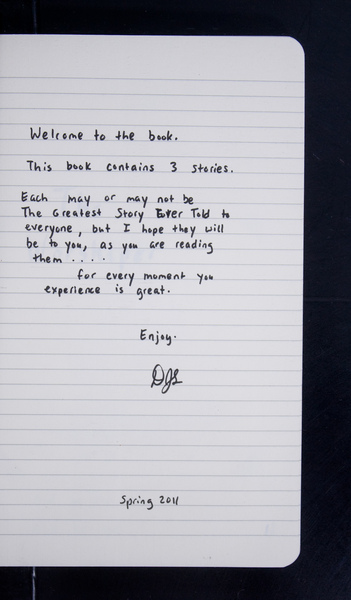 Welcome to the book.
This book contains 3 stories.
Each may or may not be
The Greatest Story Ever Told to
everyone, but I hope they will
be to you, as you are reading
them ....
for every moment you
experience is great.
Enjoy.
DJS
Spring 2011